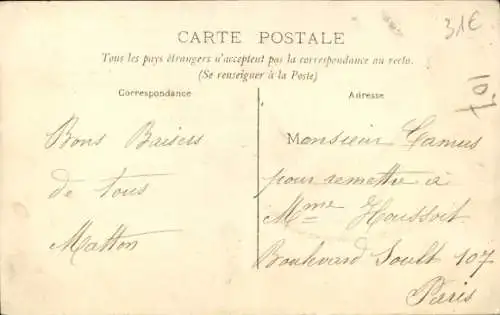 CARTE POSTALE
Tous les pays étrangers n'acceptent pas la correspondance au recto.
(Se renseigner à la Poste)
Correspondance
Adresse
Bons Baisers
de tous
Matton
Monsieur Camus
pour remettre à
Mme Houssoit
Boulevard Soult 107
Paris
31€